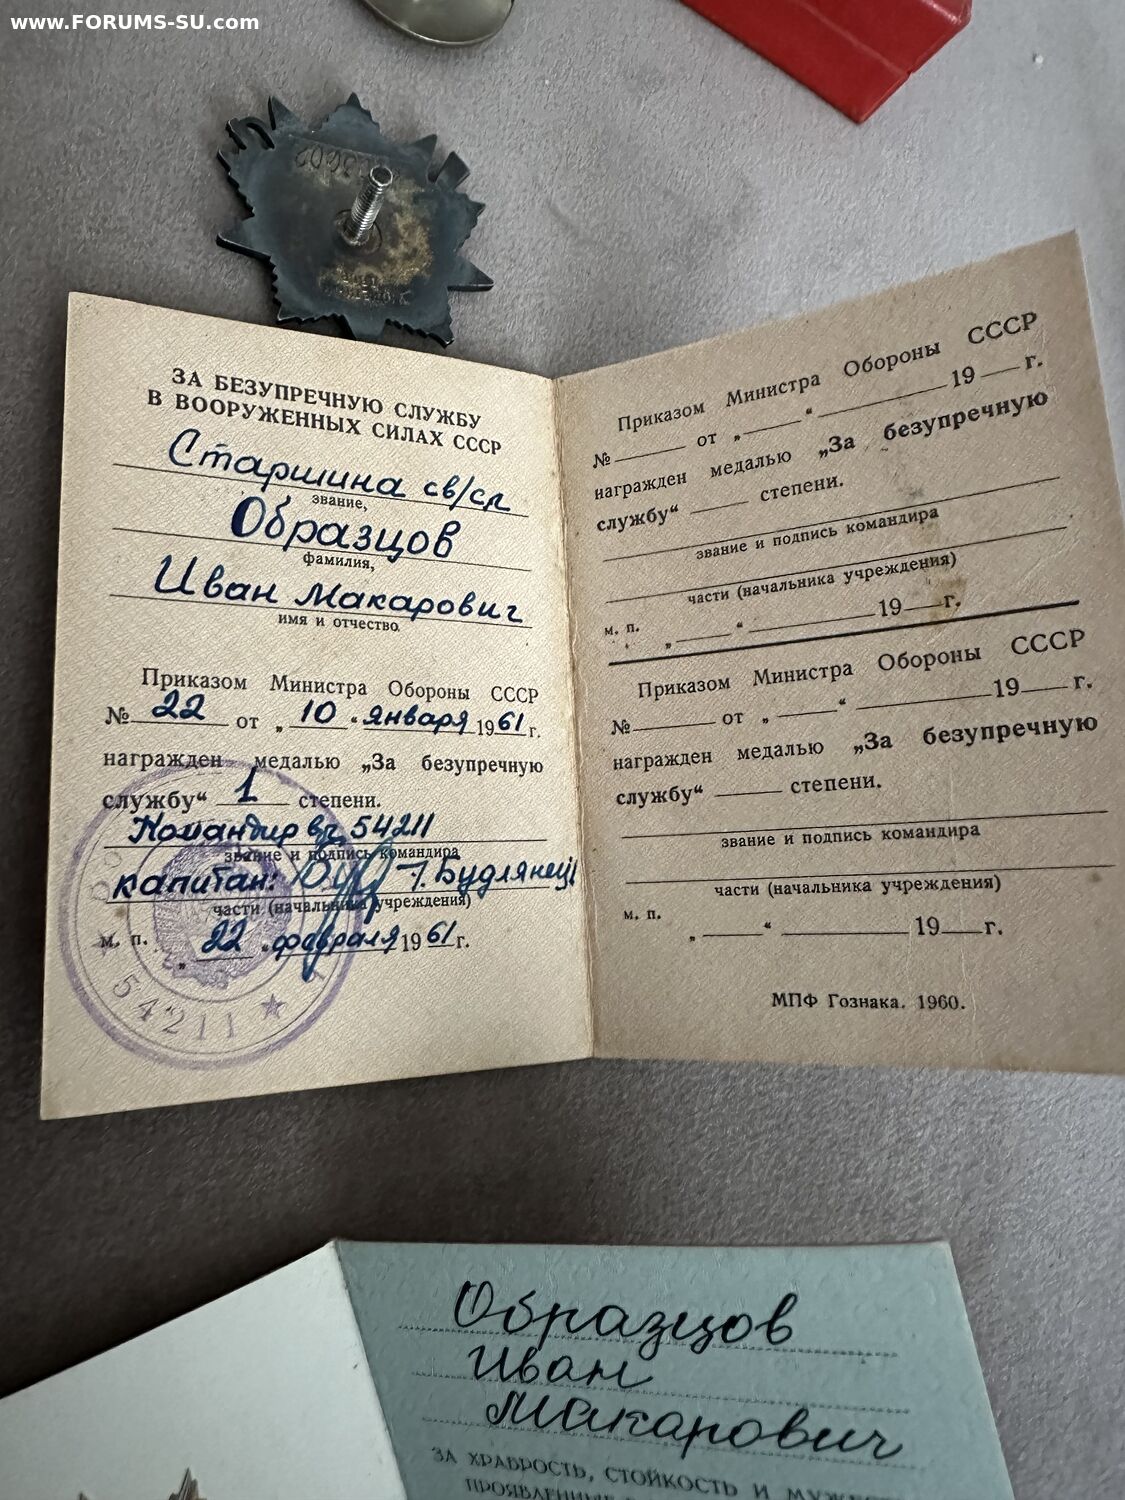 www.FORUMS-SU.com
ЗА БЕЗУПРЕЧНУЮ СЛУЖБУ
В ВООРУЖЕННЫХ СИЛАХ СССР
Старшина св/сл
звание,
Образцов
фамилия,
Иван Макарович
имя и отчество.
Приказом Министра Обороны СССР
№ 22 от „10“ января 1961 г.
награжден медалью „За безупречную
службу“ 1 степени.
Командир в/ч 54211
звание и подпись командира
капитан: Г. Будлянец
части (начальника учреждения)
м. п. „22“ февраля 1961 г.
54211
Приказом Министра Обороны СССР
№ от „ “ 19 г.
награжден медалью „За безупречную
службу“ степени.
звание и подпись командира
части (начальника учреждения)
м. п. „ “ 19 г.
Приказом Министра Обороны СССР
№ от „ “ 19 г.
награжден медалью „За безупречную
службу“ степени.
звание и подпись командира
части (начальника учреждения)
м. п. „ “ 19 г.
МПФ Гознака. 1960.
Образцов
Иван
Макарович
ЗА ХРАБРОСТЬ, СТОЙКОСТЬ И МУЖЕС
ПРОЯВЛЕННЫЕ